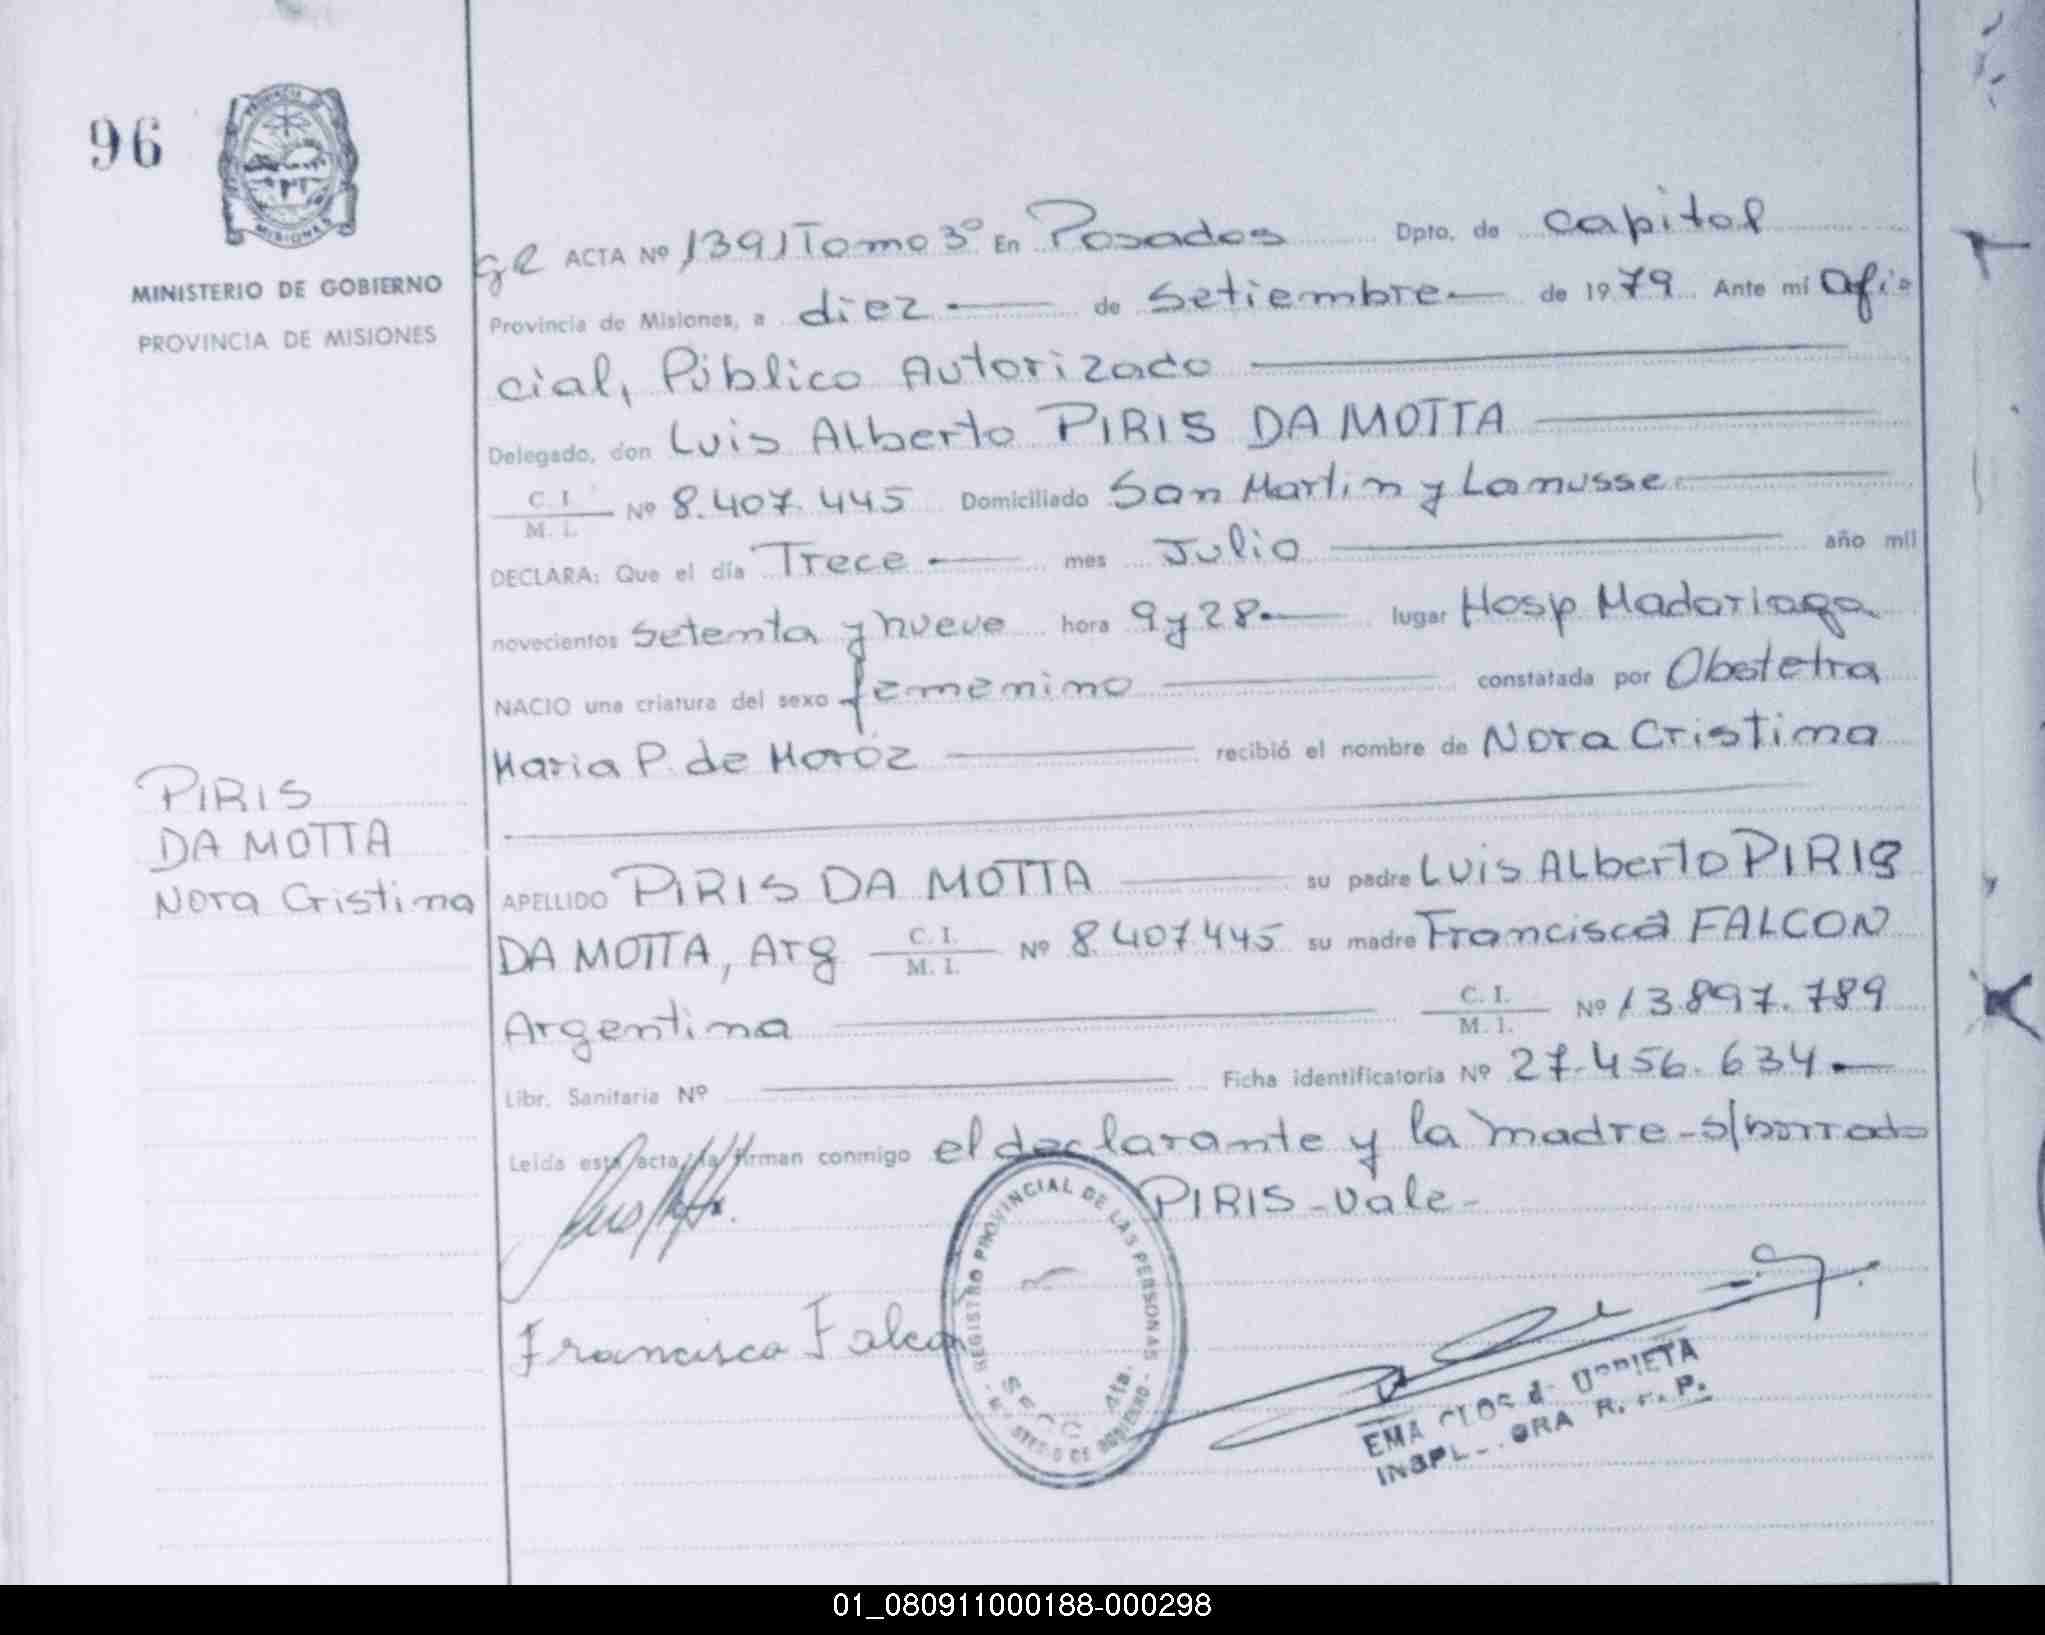 96
PROVINCIA DE
MISIONES
MINISTERIO DE GOBIERNO
PROVINCIA DE MISIONES
ACTA Nº 1391 Tomo 3º En Posadas Dpto. de Capital
Provincia de Misiones, a diez de Setiembre de 1979 Ante mi Ofi-
cial, Público Autorizado
Delegado, don Luis Alberto PIRIS DA MOTTA
C. I. / M. I. Nº 8.407.445 Domiciliado San Martin y Lanusse
DECLARA: Que el día Trece mes Julio año mil
novecientos setenta y nueve hora 9 y 28 lugar Hosp Madariaga
NACIO una criatura del sexo femenino constatada por Obstetra
Maria P. de Moroz recibió el nombre de Nora Cristina
PIRIS
DA MOTTA
Nora Cristina
APELLIDO PIRIS DA MOTTA su padre Luis Alberto PIRIS
DA MOTTA, Arg C. I. / M. I. Nº 8.407.445 su madre Francisca FALCON
Argentina C. I. / M. I. Nº 13.897.789
Libr. Sanitaria Nº Ficha identificatoria Nº 27.456.634
Leída esta acta la firman conmigo el declarante y la madre - s/borrado
PIRIS - Vale -
Francisca Falcon
REGISTRO PROVINCIAL DE LAS PERSONAS
DE GOBIERNO
EMA
R. P.
01_080911000188-000298